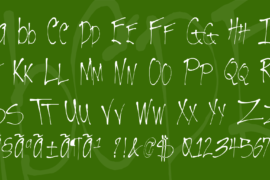 a bb Cc DD EE FF GG HH I
K LL MM NN OO PP QQ R
OS TT UU VV WW XX YY Z
ª§ãªã±ã ?!&@$ 01234567